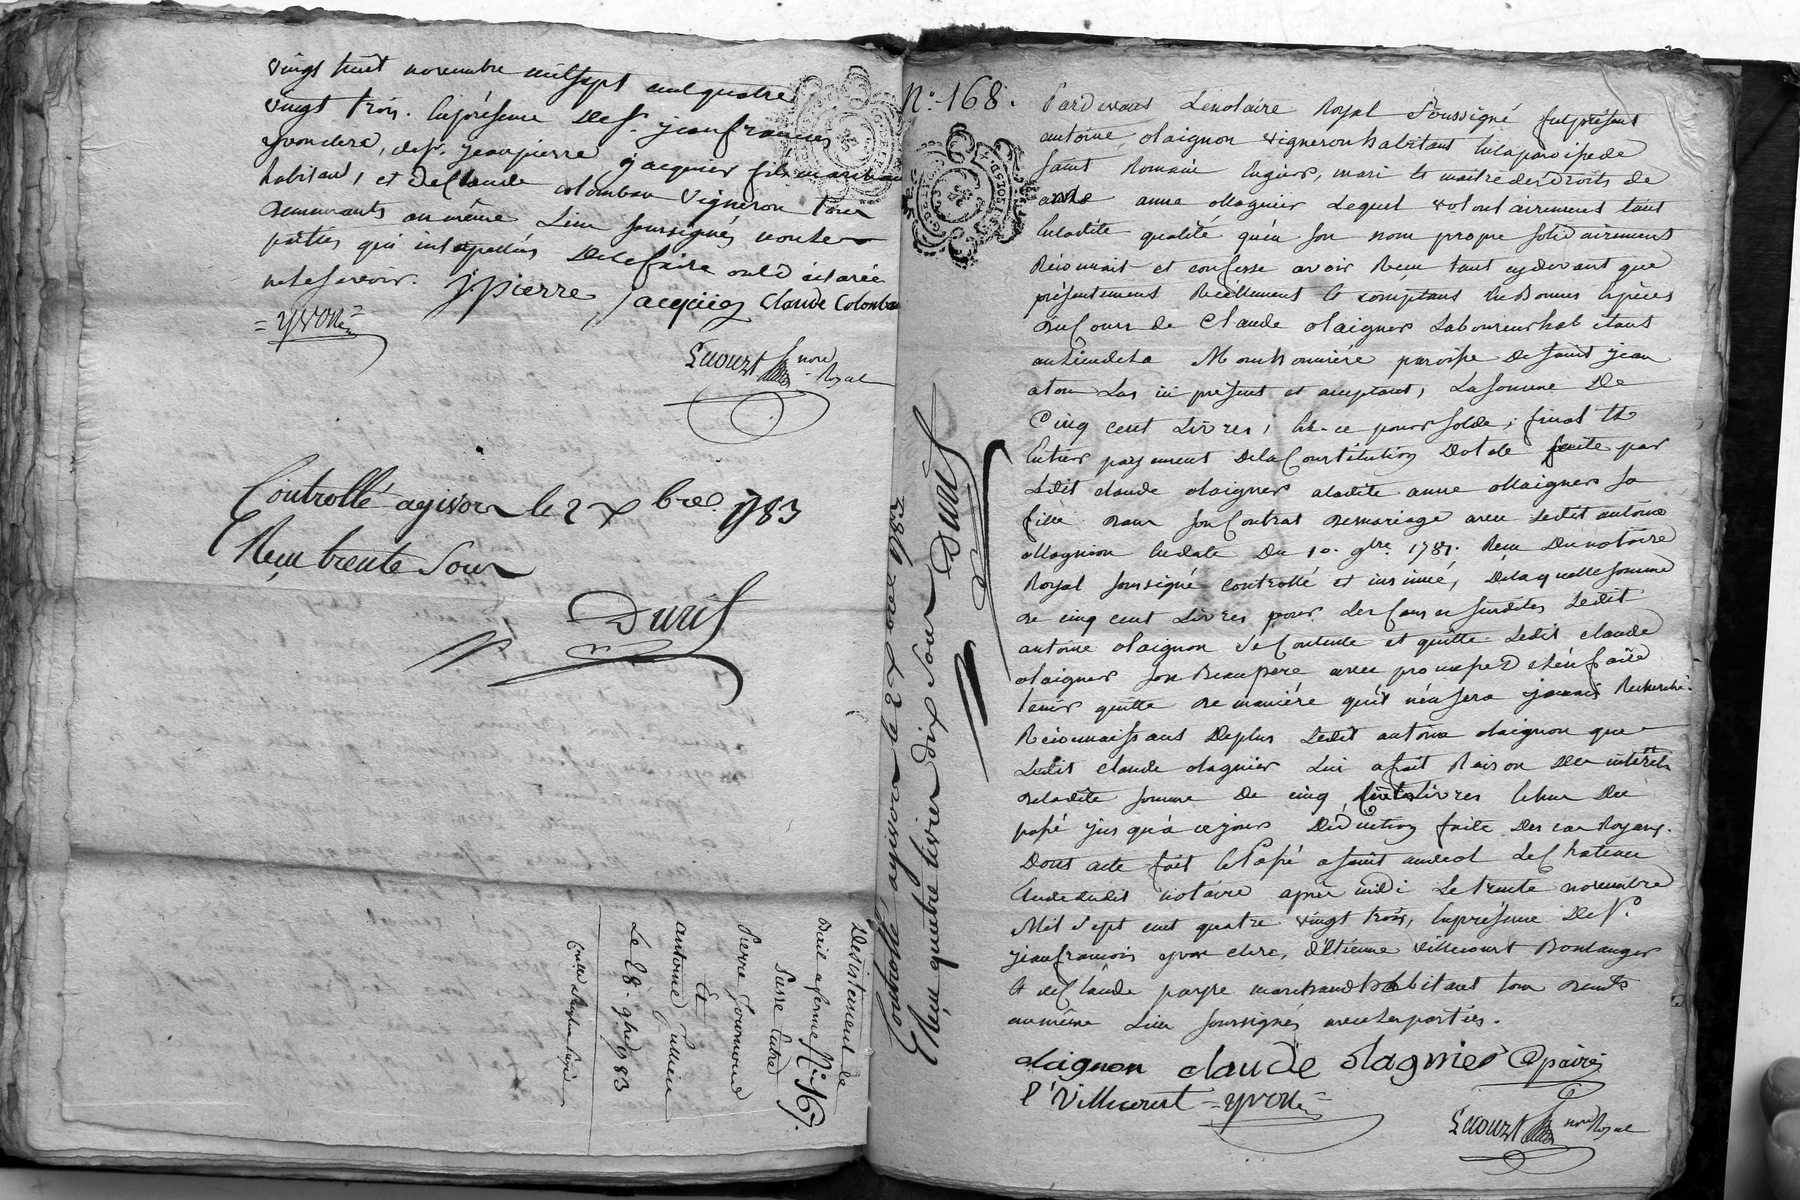 vingt huit novembre mil sept cent quatre
vingt trois. En présence de Sr. jean francois
yvonclere, de Sr. jean pierre jacquier fils marchand
habitant, et de Claude colomban vigneron tous
demeurants au même Lieu soussignés non les
parties qui interpellées de le faire ont déclarée
ne le scavoir. J pierre jacquier Claude Colomban
= yvon =
Lecourt nore Royal
Controllé a givors le 2 xbre 1783
Reçu trente Sous
Duril
Desistement de
Bail a ferme No. 167.
Passé Entre
Pierre
Et
antoine Jullien
Le 28. 9bre 1783
No. 168.
Controllé a givors le 2 xbre 1783
Reçu quatre livres dix sous Duril
Pardevant Le notaire Royal Soussigné fut présent
antoine olaignon vigneron habitant en la paroisse de
saint Romain en giers, mari et maitre des droits de
anne olagnier Lequel volontairement tant
en ladite qualité qu'en son nom propre solidairement
Reconnait et confesse avoir Recu tant cydevant que
présentement Reellement et comptant En Bonnes Espèces
du Cours de Claude olaignier Laboureur habitant
au Lieu de la paroisse de saint jean
a tou Las ici présent et acceptant, La somme De
Cinq cent Livres, Et ce pour solde, final et
Entier payement De la Constitution Dotale faite par
Ledit claude olaignier a ladite anne ollaignier sa
fille dans son Contrat de mariage avec Ledit antoine
ollagnion En date Du 10. 9bre 1781. Recu Du notaire
Royal soussigné controllé et insinué, De laquelle somme
de cinq cent Livres pour Les causes susdites Ledit
antoine olaignon se Contente et quitte Ledit claude
olaignier son Beaupere avec promesse De l'en faire
tenir quitte de manière qu'il n'en sera jamais Recherché.
Reconnaissant De plus Ledit antoine olaignon que
Ledit claude olagnier Lui a fait Raison Des intérêts
de ladite somme De cinq Cent Livres Echus Du
passé jusqu'à ce jour Deduction faite Des cas Royaux.
Dont acte fait et Passé a saint andeol Le Chateau
Etude dudit notaire après midi Le trente novembre
Mil sept cent quatre vingt trois, En présence De Sr.
jean francois yvon clere, d'Etienne villecourt Boulanger
et de Claude payre marchand habitant tous deux
au même Lieu soussignés avec Les parties.
olaignon claude olagnier Cpaire
E Villecourt = yvon =
Lecourt nore Royal